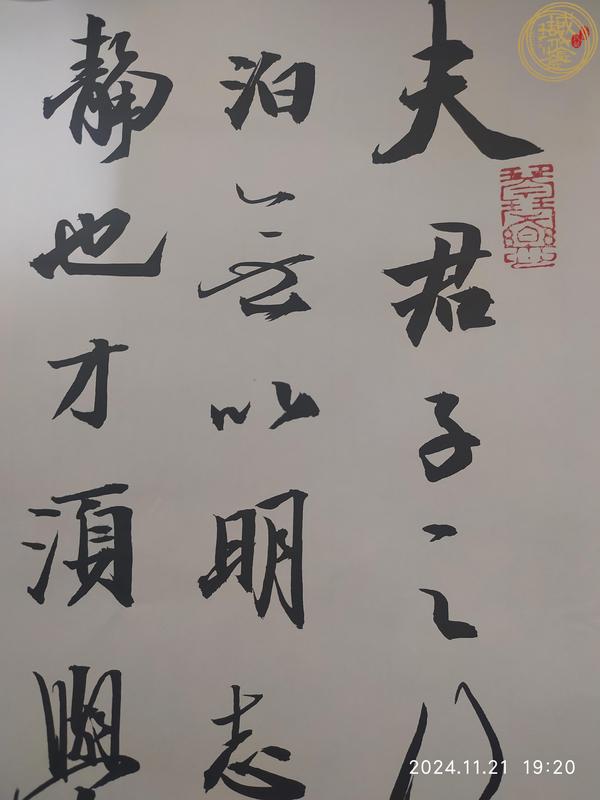 夫君子之行
泊無以明志
靜也才須學
2024.11.21 19:20